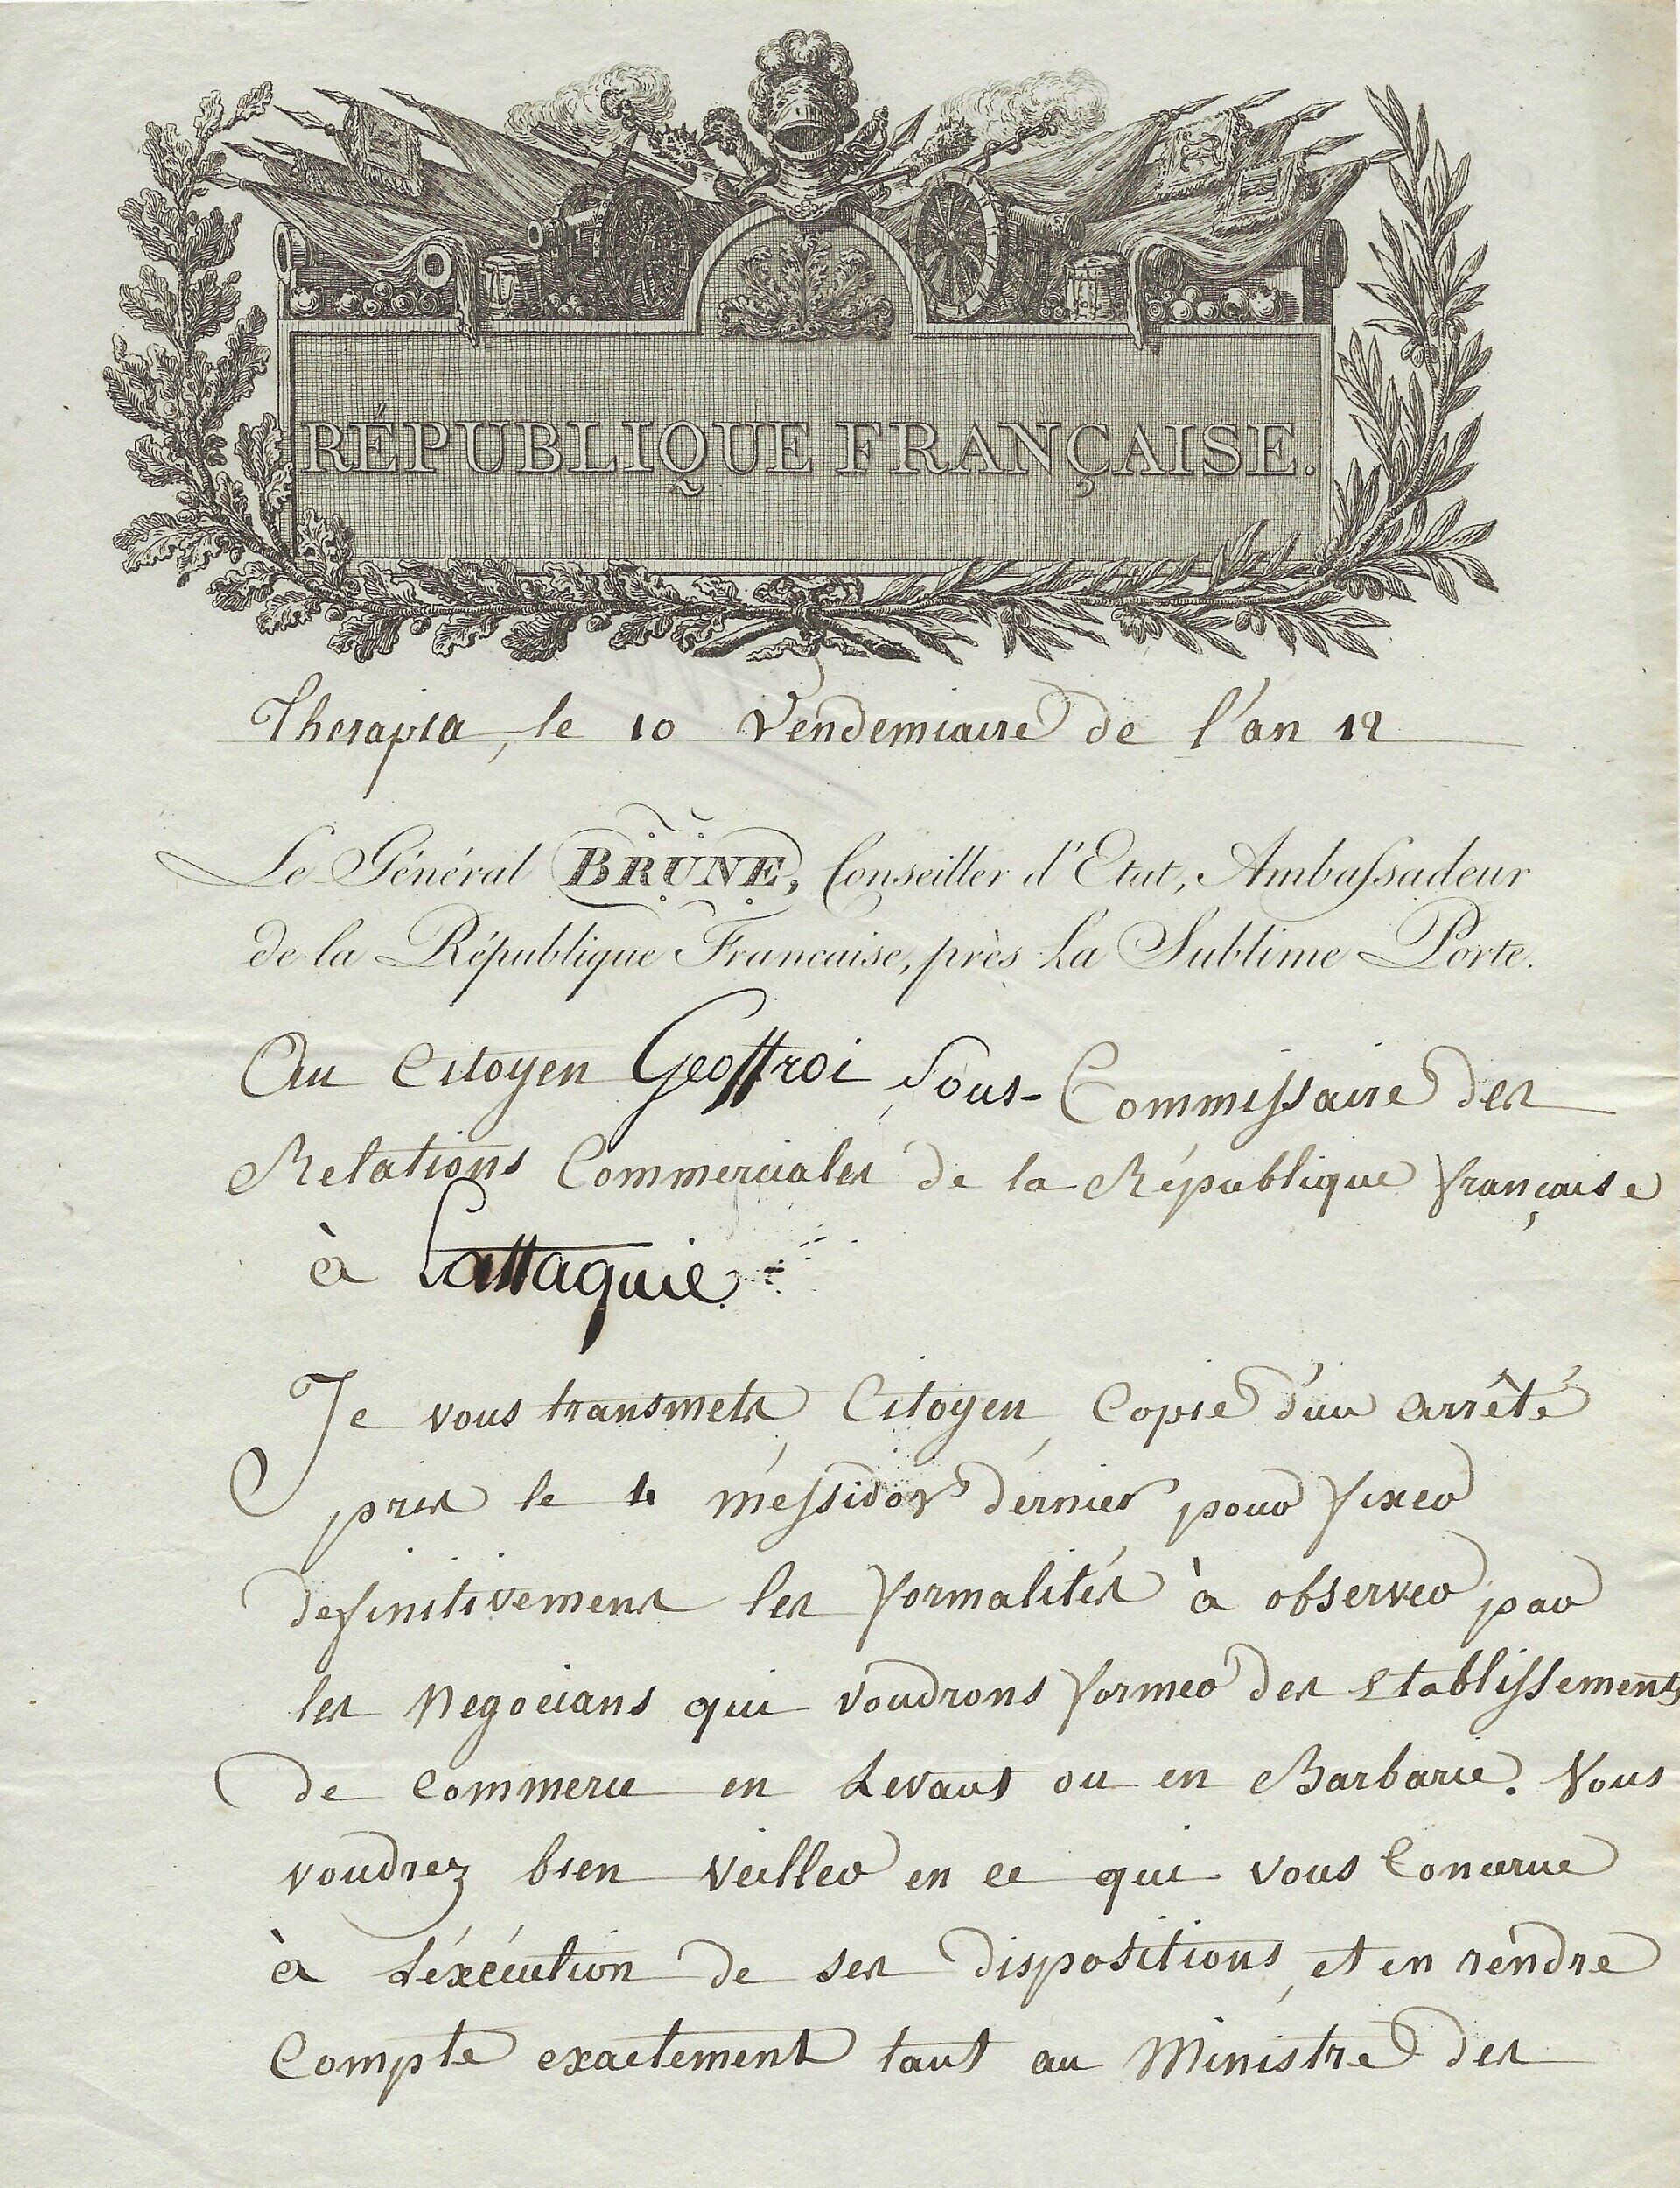 RÉPUBLIQUE FRANÇAISE.
Therapia, le 10 Vendemiaire de l'an 12
Le Général BRUNE, Conseiller d'Etat, Ambassadeur
de la République Francaise, près La Sublime Porte.
Au Citoyen Geoffroi Sous-Commissaire des
Relations Commerciales de la République française
à Lattaquie
Je vous transmets, Citoyen, Copie d'un arrêté
pris le 4 méssidor dérnier pour fixer
definitivement les formalités à observer par
les Negocians qui voudrons former des Etablissements
de Commerce en Levant ou en Barbarie. Vous
voudrez bien veiller en ce qui vous Concerne
à L'éxécution de ses dispositions, et en réndre
Compte exactement tant au Ministre des